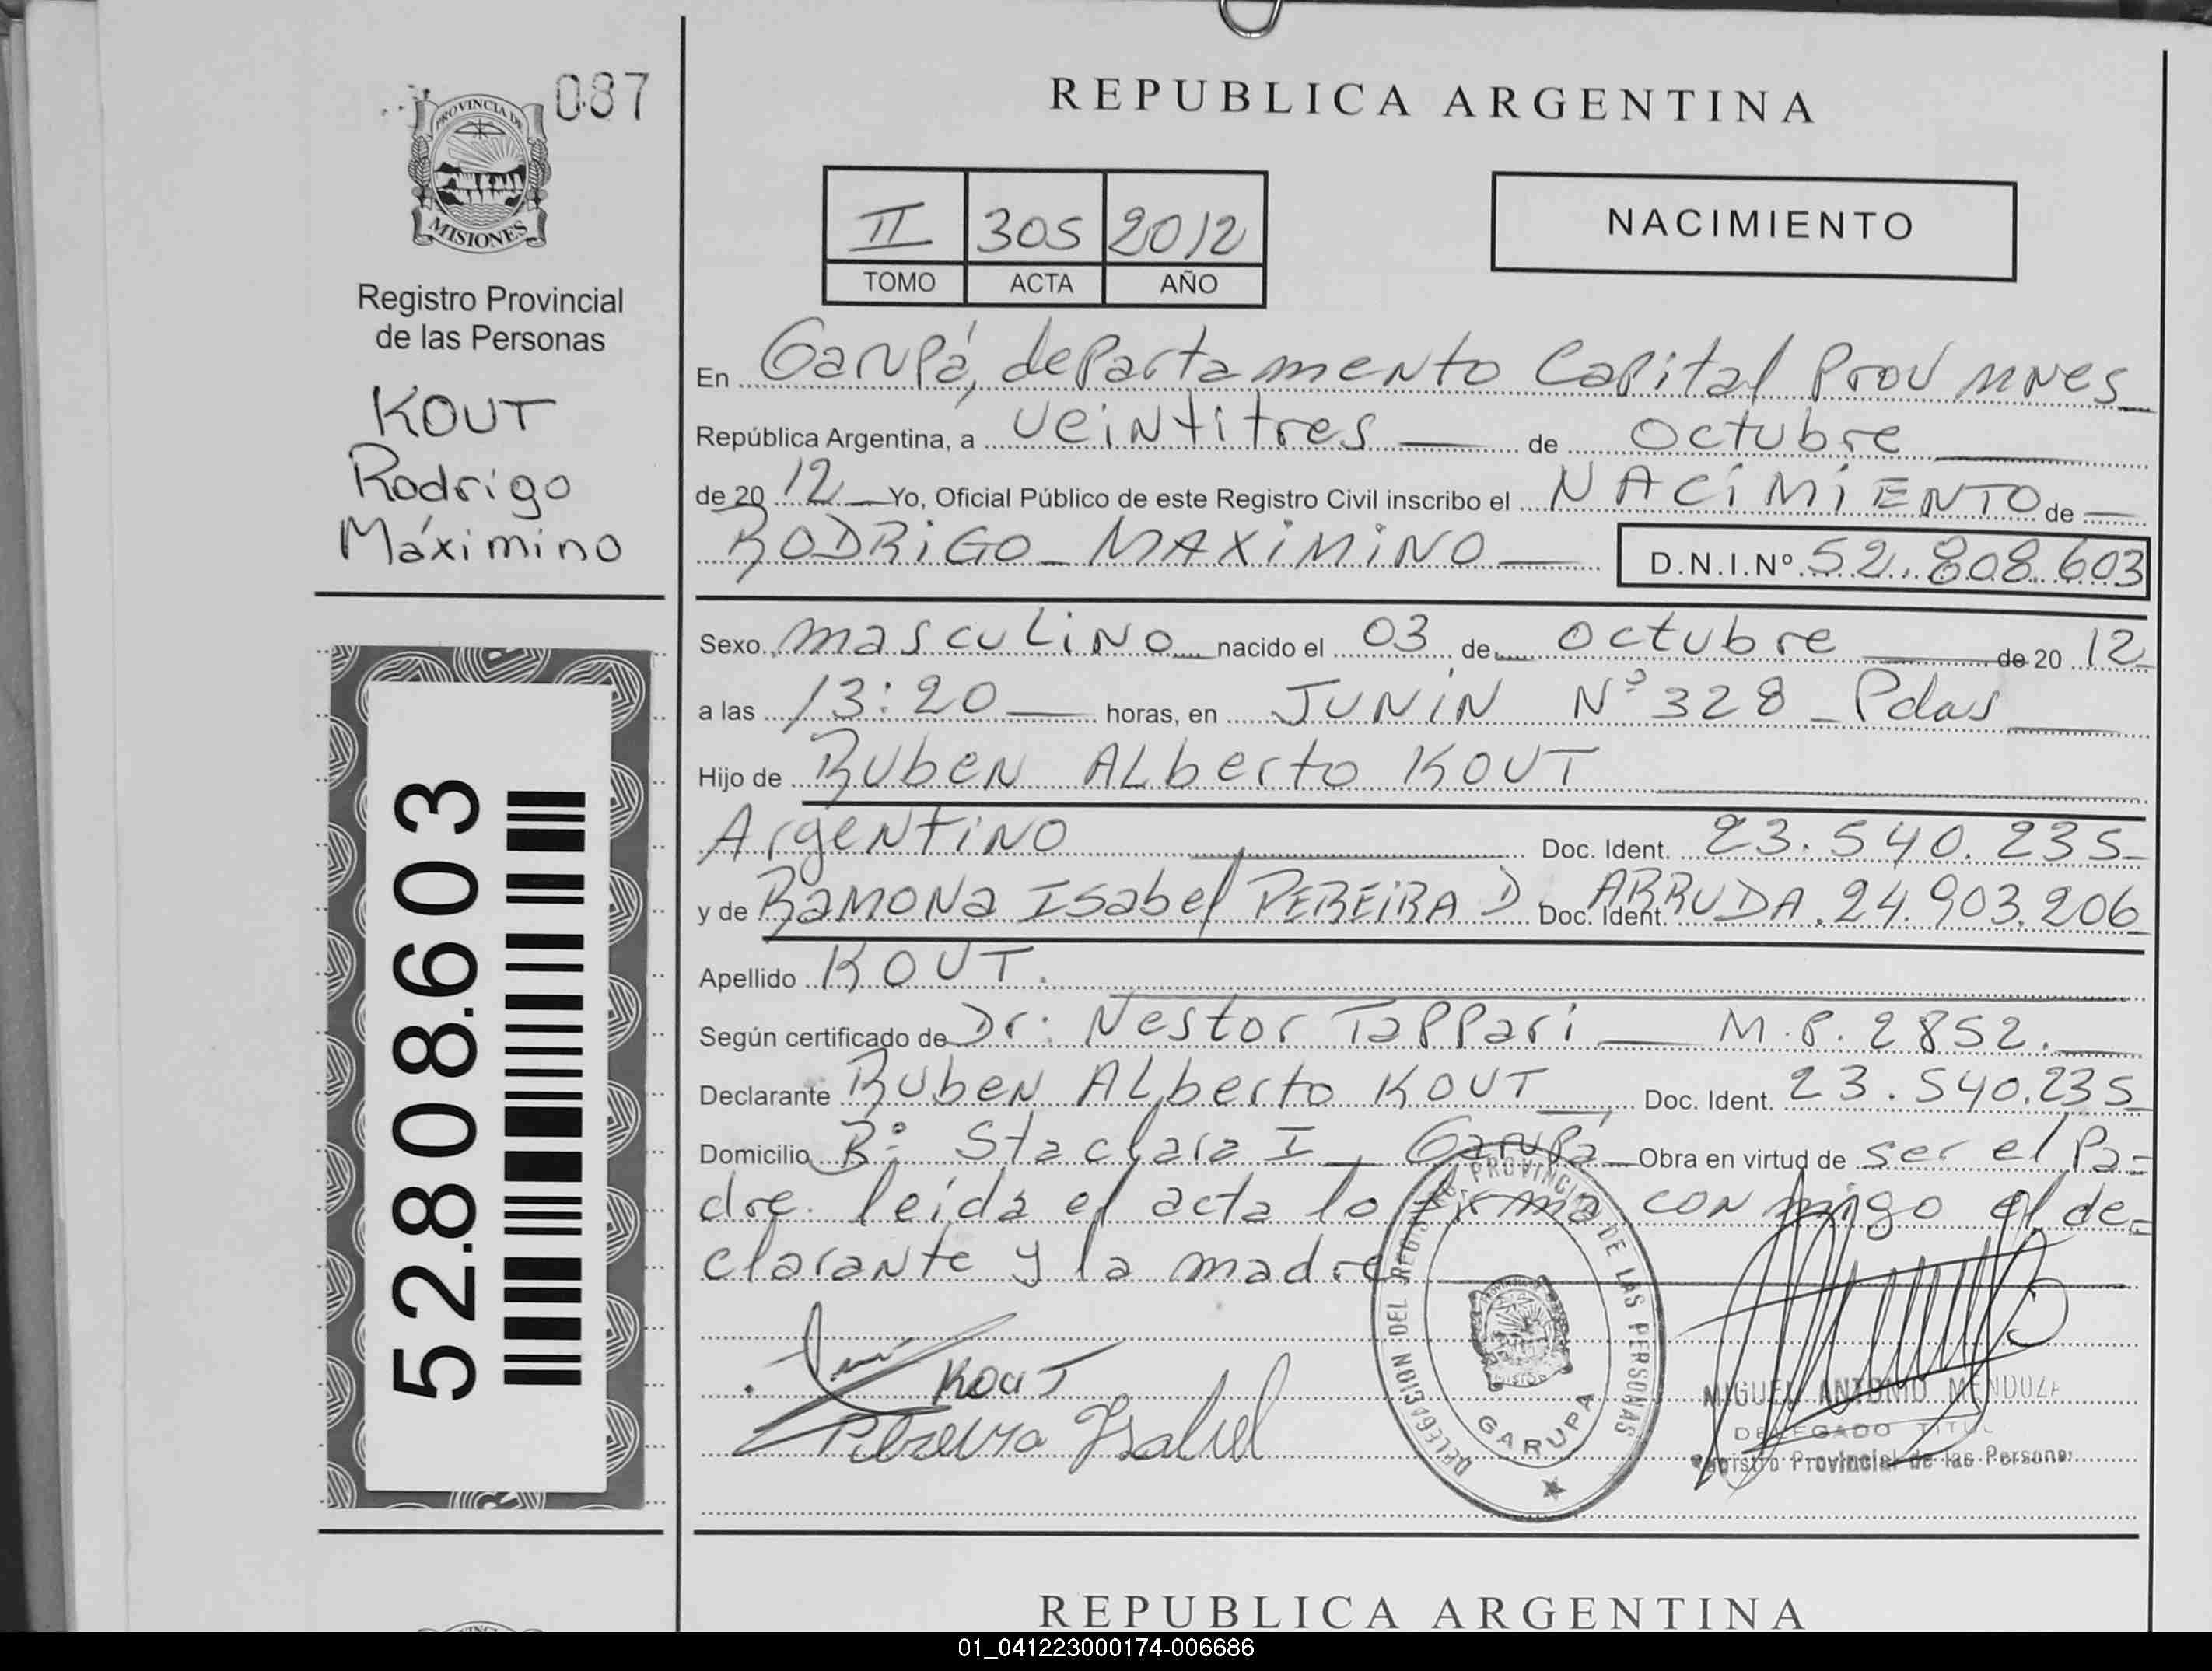 087
PROVINCIA DE
MISIONES
Registro Provincial
de las Personas
KOUT
Rodrigo
Máximino
52.808.603
REPUBLICA ARGENTINA
II 305 2012
TOMO ACTA AÑO
NACIMIENTO
En Garupá, departamento Capital Prov mnes
República Argentina, a veintitres de octubre
de 2012 Yo, Oficial Público de este Registro Civil inscribo el NACIMIENTO de
RODRIGO MAXIMINO D.N.I.Nº 52.808.603
Sexo masculino nacido el 03 de octubre de 2012
a las 13:20 horas, en JUNIN Nº 328 - Pdas
Hijo de Ruben Alberto KOUT
Argentino Doc. Ident. 23.540.235
y de Ramona Isabel PEREIRA D ARRUDA Doc. Ident. 24.903.206
Apellido KOUT.
Según certificado de Dr: Nestor Tappari M.P. 2852.
Declarante Ruben Alberto KOUT Doc. Ident. 23.540.235
Domicilio Bº Sta clara I - Garupá Obra en virtud de ser el Pa-
dre. leida el acta lo firma con migo el de-
clarante y la madre
KOUT
Pereira Isabel
DELEGACION DEL REGISTRO PROVINCIAL DE LAS PERSONAS
GARUPA
MIGUEL ANTONIO MENDOZA
DELEGADO TITUL
Registro Provincial de las Personas
REPUBLICA ARGENTINA
01_041223000174-006686